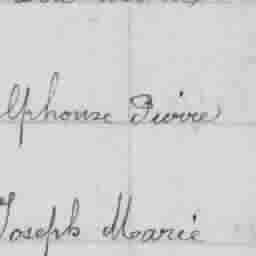 Alphonse Pierre
Joseph Marie